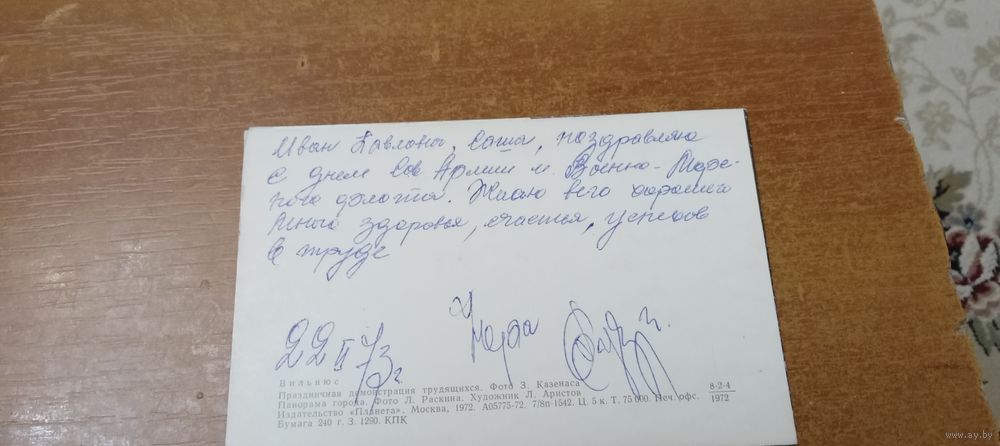 Иван Павлович, Саша, поздравляю
с днем Сов Армии и. Военно-Морс-
кого флота. Желаю всего хорошего
здоровья, счастья, успехов
в труде
22 II 73 г.
Вильнюс
Праздничная демонстрация трудящихся. Фото З. Казенаса
Панорама города. Фото Л. Раскина. Художник Л. Аристов
Издательство «Планета». Москва, 1972. А05775-72. 7/8п-1542. Ц. 5 к. Т. 75 000. Печ. офс.
Бумага 240 г. З. 1290. КПК
8-2-4
1972
www.ay.by